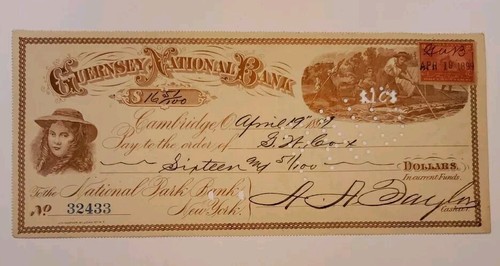 GUERNSEY NATIONAL BANK
G.N.B
APR 19 1899
$16 51/100
$16$
Cambridge, O. April 19" 1899
Pay to the order of G. W. Cox
Sixteen and 51/100 DOLLARS.
In current Funds.
To the National Park Bank,
New York.
A. A. Taylor
Cashier.
No. 32433